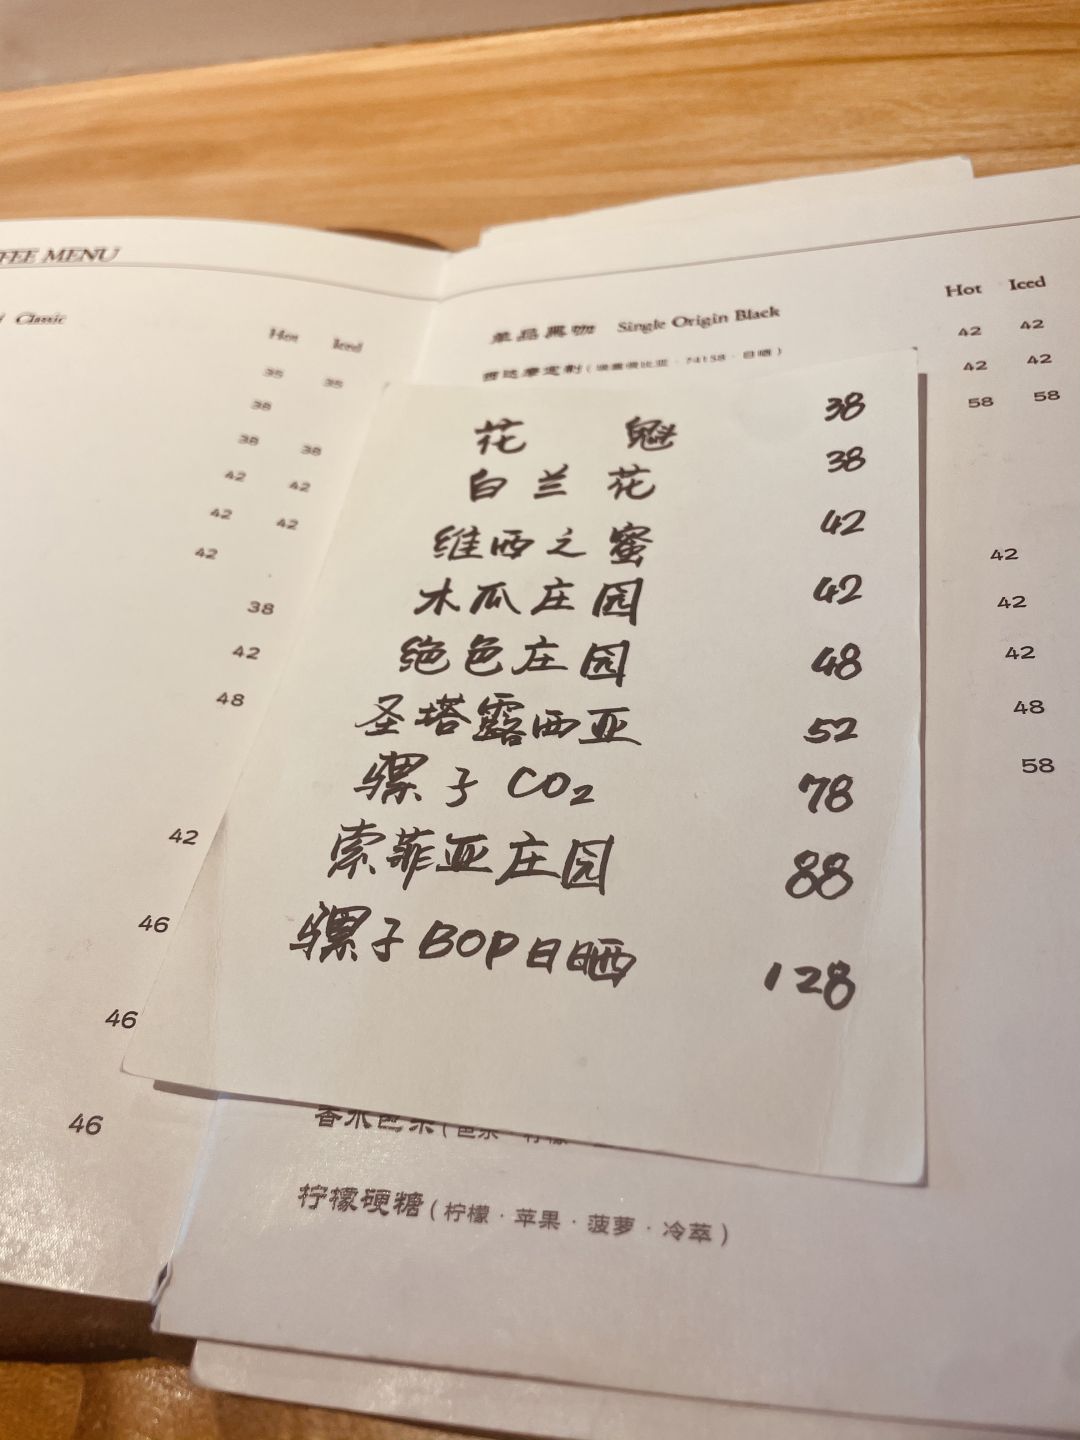 FEE MENU
Classic
Hot Iced
35 35
38
38 38
42 42
42 42
42
38
42
48
42
46
46
46
单品黑咖 Single Origin Black
Hot Iced
42 42
42 42
58 58
42
42
42
48
58
花魁 38
白兰花 38
维西之蜜 42
木瓜庄园 42
绝色庄园 48
圣塔露西亚 52
骡子 CO₂ 78
索菲亚庄园 88
骡子BOP日晒 128
柠檬硬糖(柠檬·苹果·菠萝·冷萃)